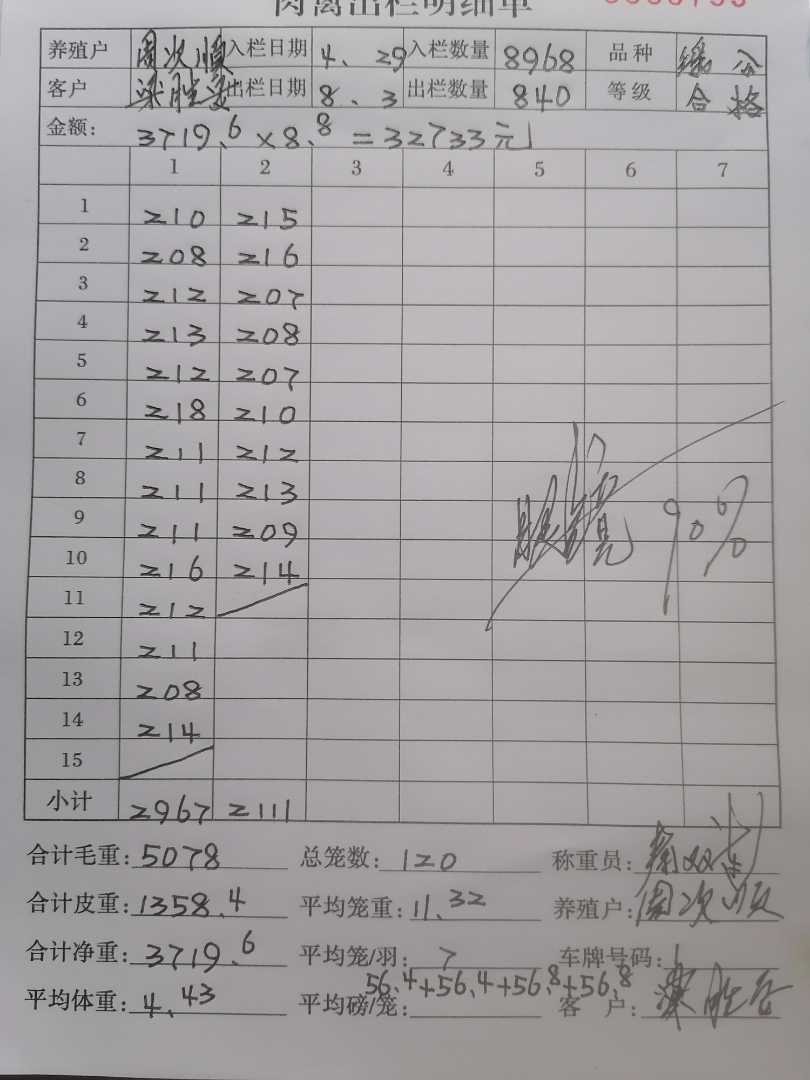 肉禽出栏明细单
养殖户 周次顺 入栏日期 4、29 入栏数量 8968 品种
客户 出栏日期 8、3 出栏数量 840 等级 合格
金额: 3719.6×8.8=32733元
1 2 3 4 5 6 7
1 210 215
2 208 216
3 212 207
4 213 208
5 212 207
6 218 210
7 211 212
8 211 213
9 211 209
10 216 214
11 212
12 211
13 208
14 214
15
90%
小计 2967 2111
合计毛重: 5078 总笼数: 120 称重员:
合计皮重: 1358.4 平均笼重: 11.32 养殖户: 周次顺
合计净重: 3719.6 平均笼/羽: 7 车牌号码:
56.4+56.4+56.8+56.8
平均体重: 4.43 平均磅/笼: 客户: